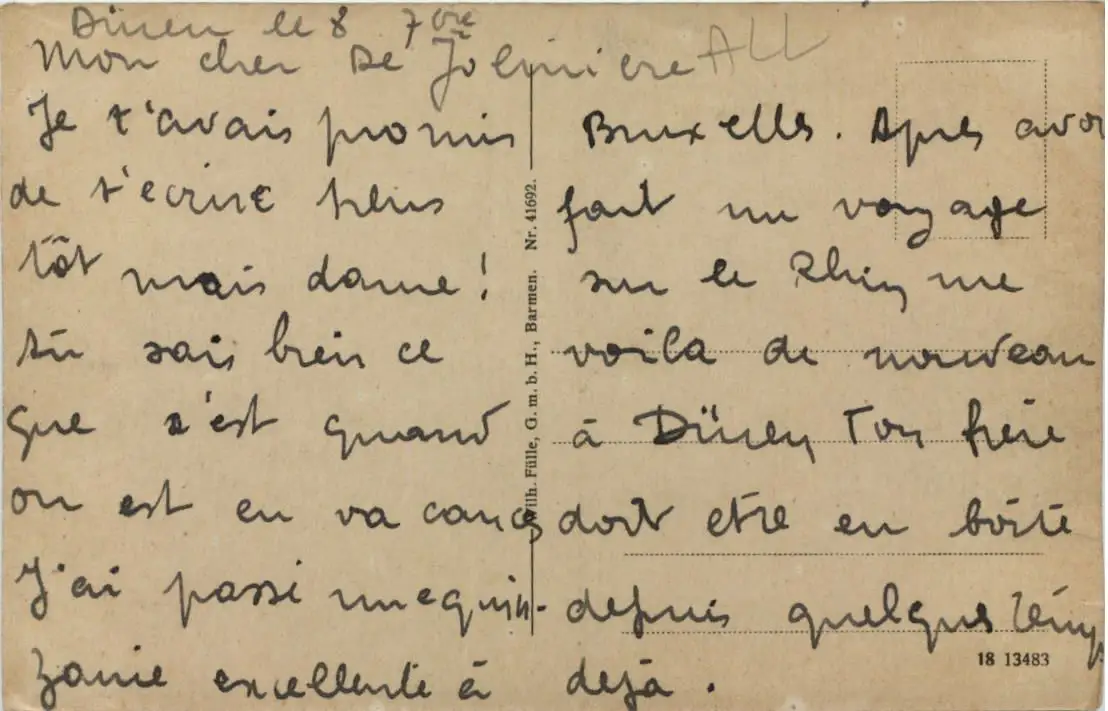 Düren le 8 7bre
Mon cher De Jolinière ALL
Je t'avais promis
de t'ecrire plus
tôt mais dame !
tu sais bien ce
que c'est quand
on est en vacances
J'ai passé une quin-
zaine excellente à
Bruxelles. Apres avoi
fait un voyage
sur le Rhin me
voila de nouveau
à Düren Ton frère
doit etre en boîte
depuis quelques temps
dejà .
Wilh. Fülle, G. m. b. H., Barmen. Nr. 41692.
18 13483